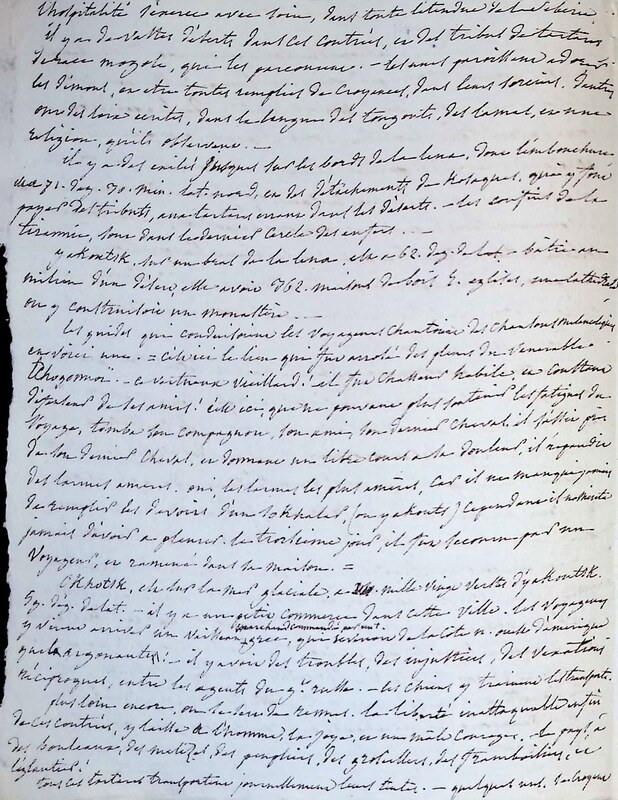 l'hospitalité s'exerce avec soin, dans toute l'étendue de la Sibérie.
il y a de vastes déserts dans ces contrées, et des tribus de tartares
de race mogole, qui les parcourent. - les uns paroissent adorer
les démons, et être toutes remplies de croyances, dans leurs sorciers. d'autres
ont des loix écrites, dans la langue des tongouts, des lamas, et une
religion, qu'ils observent. -
il y a des exilés jusques sur les bords de la lena, dont l'embouchure
est à 71. deg. 30. min. lat. nord, et des détachements de Kosaques, qui y font
payer des tributs, aux tartares errans dans les déserts. - les confins de la
tirannie, sont dans le dernier cercle des enfers. -
yakoutsk, sur un bras de la lena, est à 62. deg. de lat. - bâtie au
milieu d'un désert, elle avoit 362. maisons de bois, 5. eglises, une cathédrale
on y construisoit un monastère. -
les guides qui conduisoient les voyageurs chantoient des chansons mélancoliques
en voici une. = c'est ici le lieu que fut arrosé des pleurs du vénérable
- ce vertueux vieillard! il fut chasseur habile, et
de ses amis! c'est ici, que ne pouvant plus soutenir les fatigues du
voyage, tomba son compagnon, son ami, son dernier cheval! il s'assit près
de son dernier cheval, et donnant un libre cours à sa douleur, il répandit
des larmes amères. oui, les larmes les plus amères, car il ne manqua jamais
de remplir les devoirs d'un (ou yakouts) cependant il
jamais d'avoir à pleurer. le troisième jour, il fut secouru par un
voyageur, et ramené dans sa maison. =
Okhotsk, est sur la mer glaciale, à mille vingt verstes d'yakoutsk.
59. deg. de lat. - il y a un petit commerce dans cette ville. les voyageurs
y virent arriver un vaisseau grec, qui revenoit de la côte n. ouest d'amérique
quels argonautes! - il y avoit des troubles, des injustices, des vexations
réciproques, entre les agents du gt. russe. - les chiens y traînent les transports.
plus loin encore, on se sert de rennes. la liberté inattaquable enfin
de ces contrées, y laisse à l'homme, la joye, et un mâle courage. - le pays, à
des bouleaux, des melezes, des peupliers, des groseillers, des framboisiers, et
l'églantier!
tous ces tartares transportent journellement leurs tentes. - quelques uns